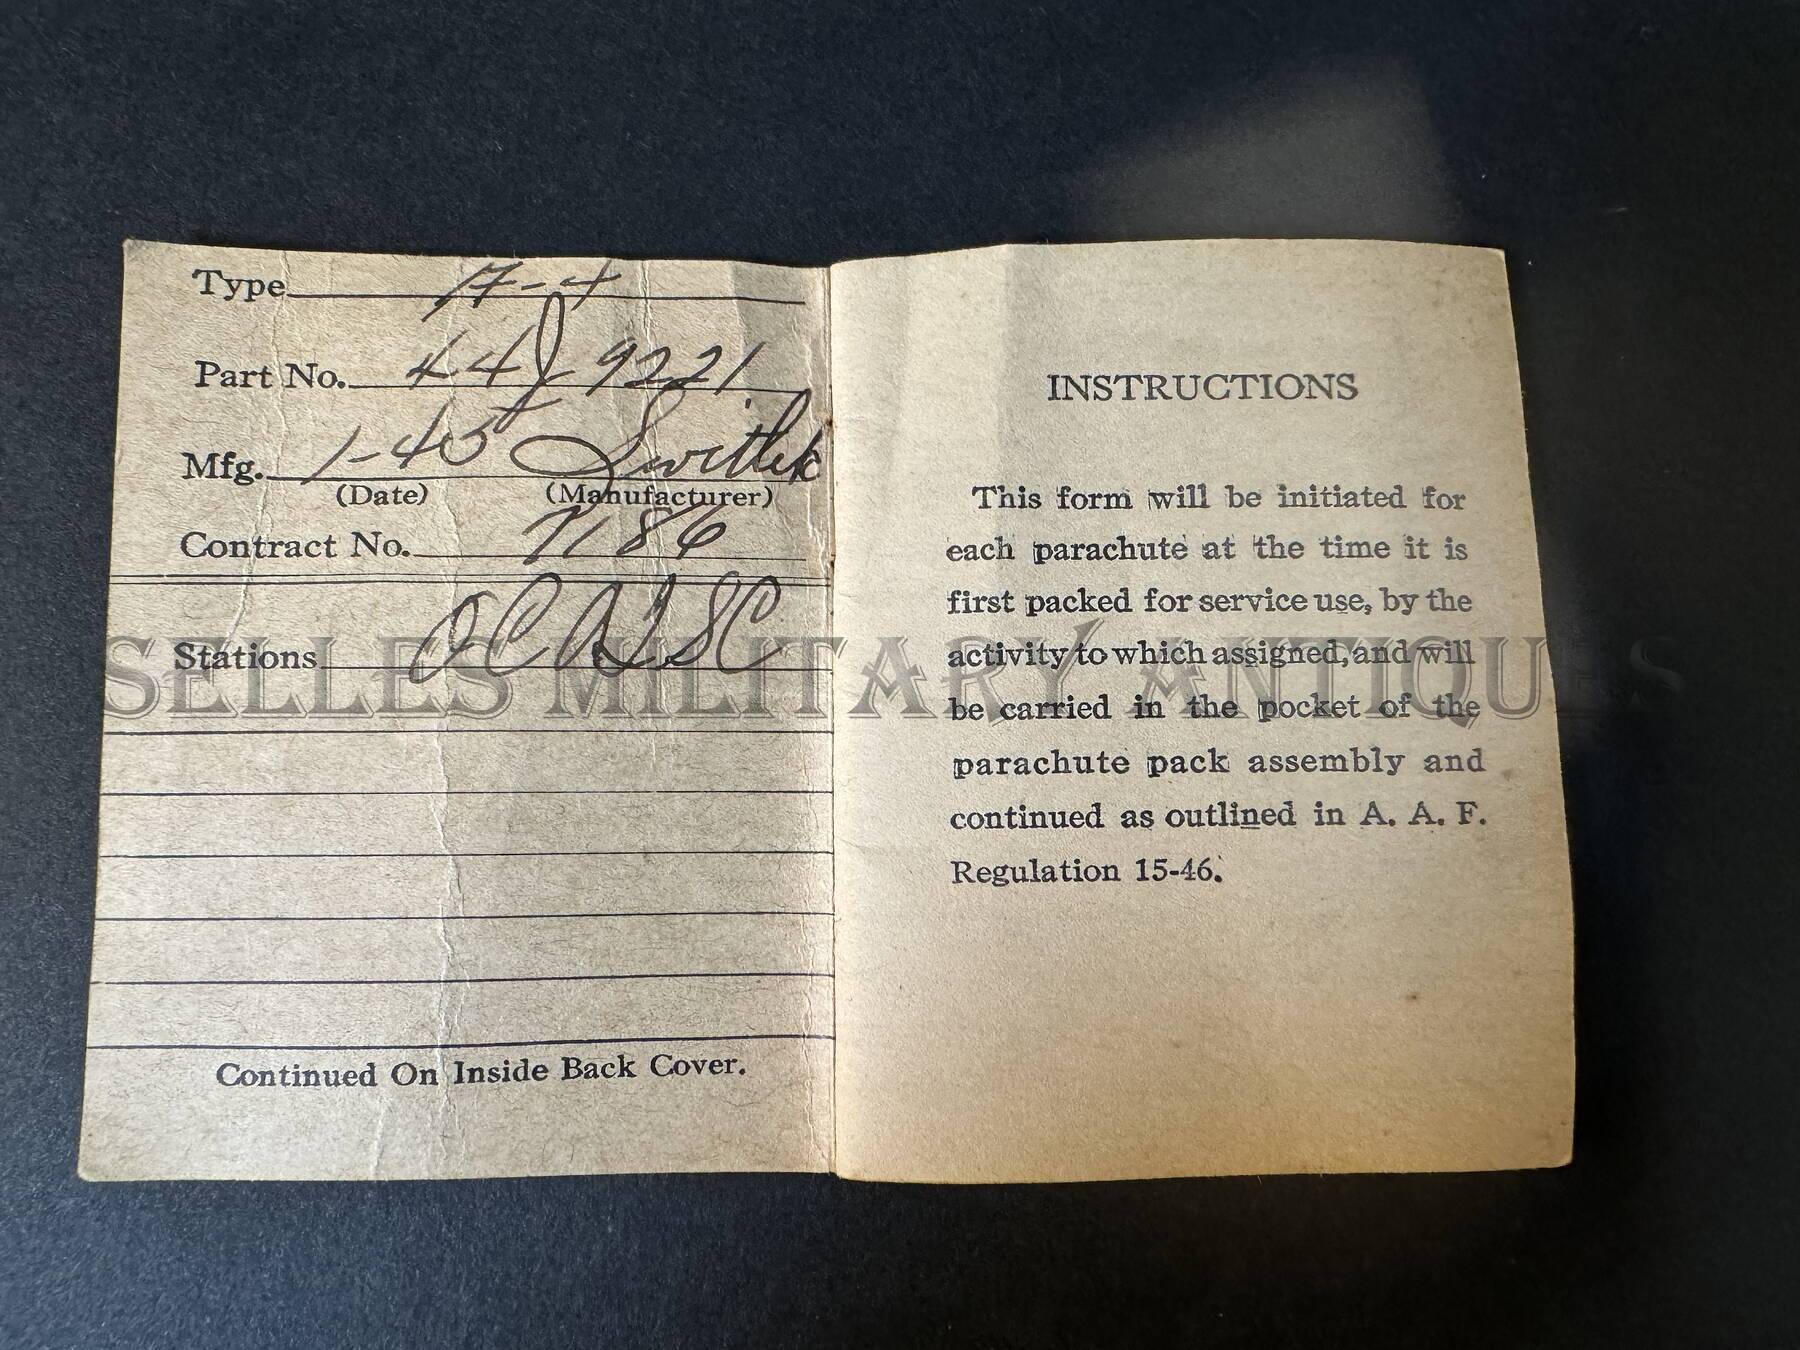 Type
Part No. 44J-9221
Mfg. 1-45 Switlik
(Date) (Manufacturer)
Contract No. 7186
Stations OCATSC
Continued On Inside Back Cover.
INSTRUCTIONS
This form will be initiated for
each parachute at the time it is
first packed for service use, by the
activity to which assigned, and will
be carried in the pocket of the
parachute pack assembly and
continued as outlined in A. A. F.
Regulation 15-46.
SELLES MILITARY ANTIQUES